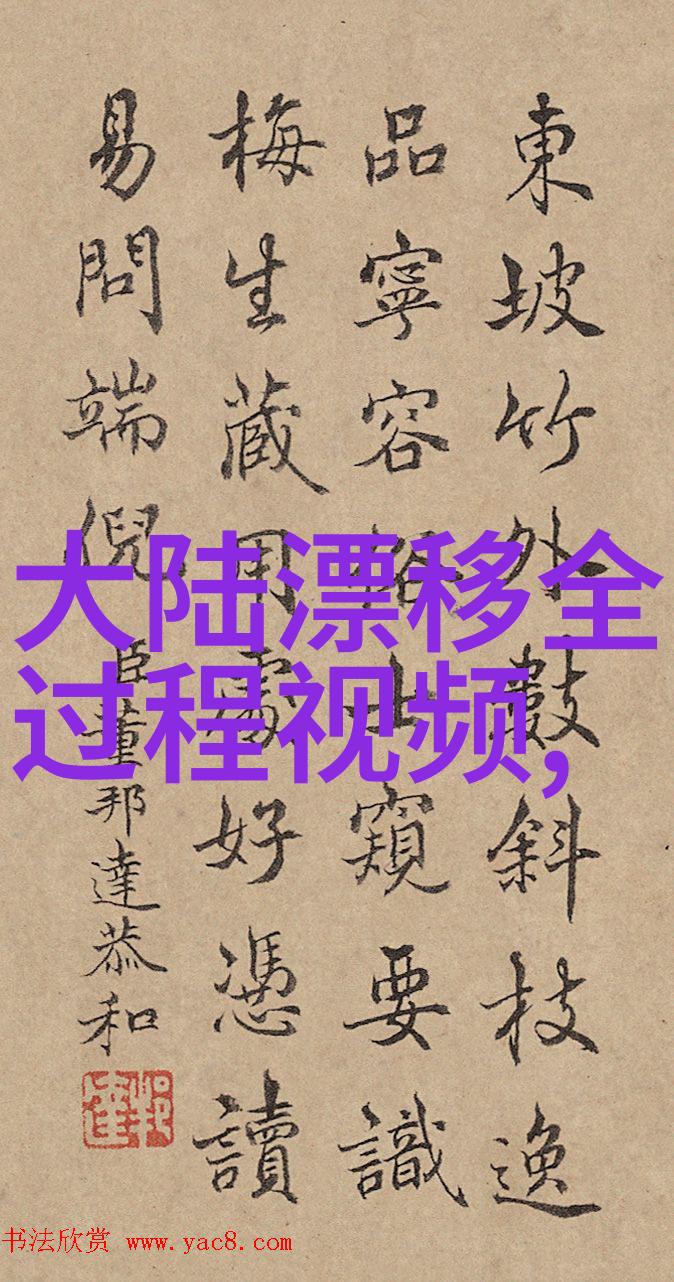 東坡竹外數斜枝逸
品寧容格窺要識
梅生藏用處好憑讀
易問端倪 臣董邦達恭和
邦達
大陆漂移全
过程视频,
书法欣赏 www.yac8.com